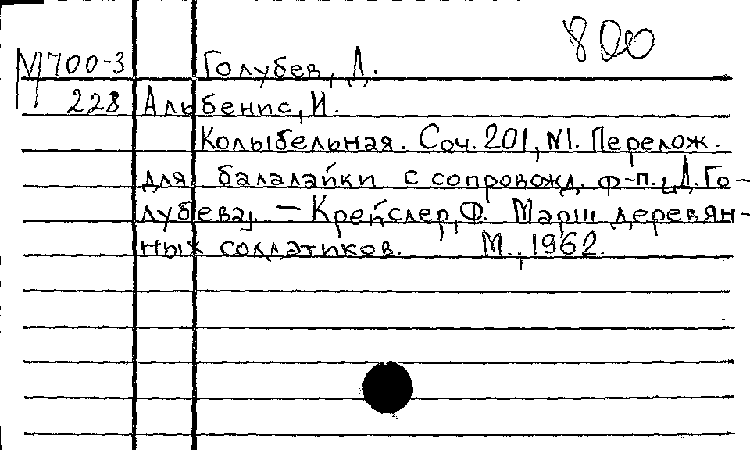 800
М700-3 Голубев, Д.
228 Альбенис, И.
Колыбельная. Соч. 201, №1. Перелож.
для балалайки с сопровожд. ф-п. Д. Го-
лубева. — Крейслер, Ф. Марш деревян-
ных солдатиков. М., 1962.